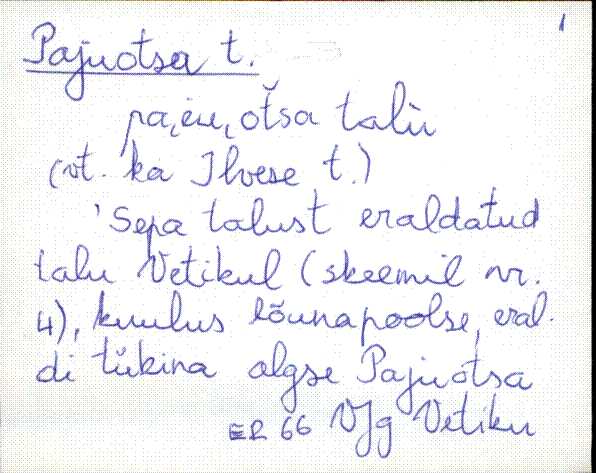 1
Pajuotsa t.
pa,i̮u,oťsa talù
(vt. ka Ilvese t.)
'Sepa talust eraldatud
talu Vetikul (skeemil nr.
4), kuulus lõunapoolse, eral-
di tükina algse Pajuotsa
ER 66 VJg Vetiku